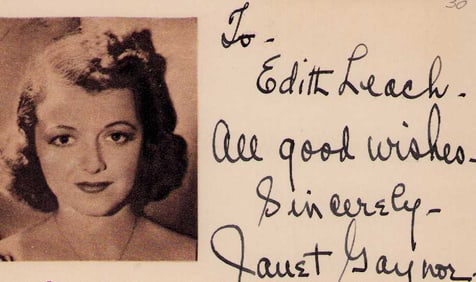 30
To -
Edith Leach -
All good wishes -
Sincerely -
Janet Gaynor.